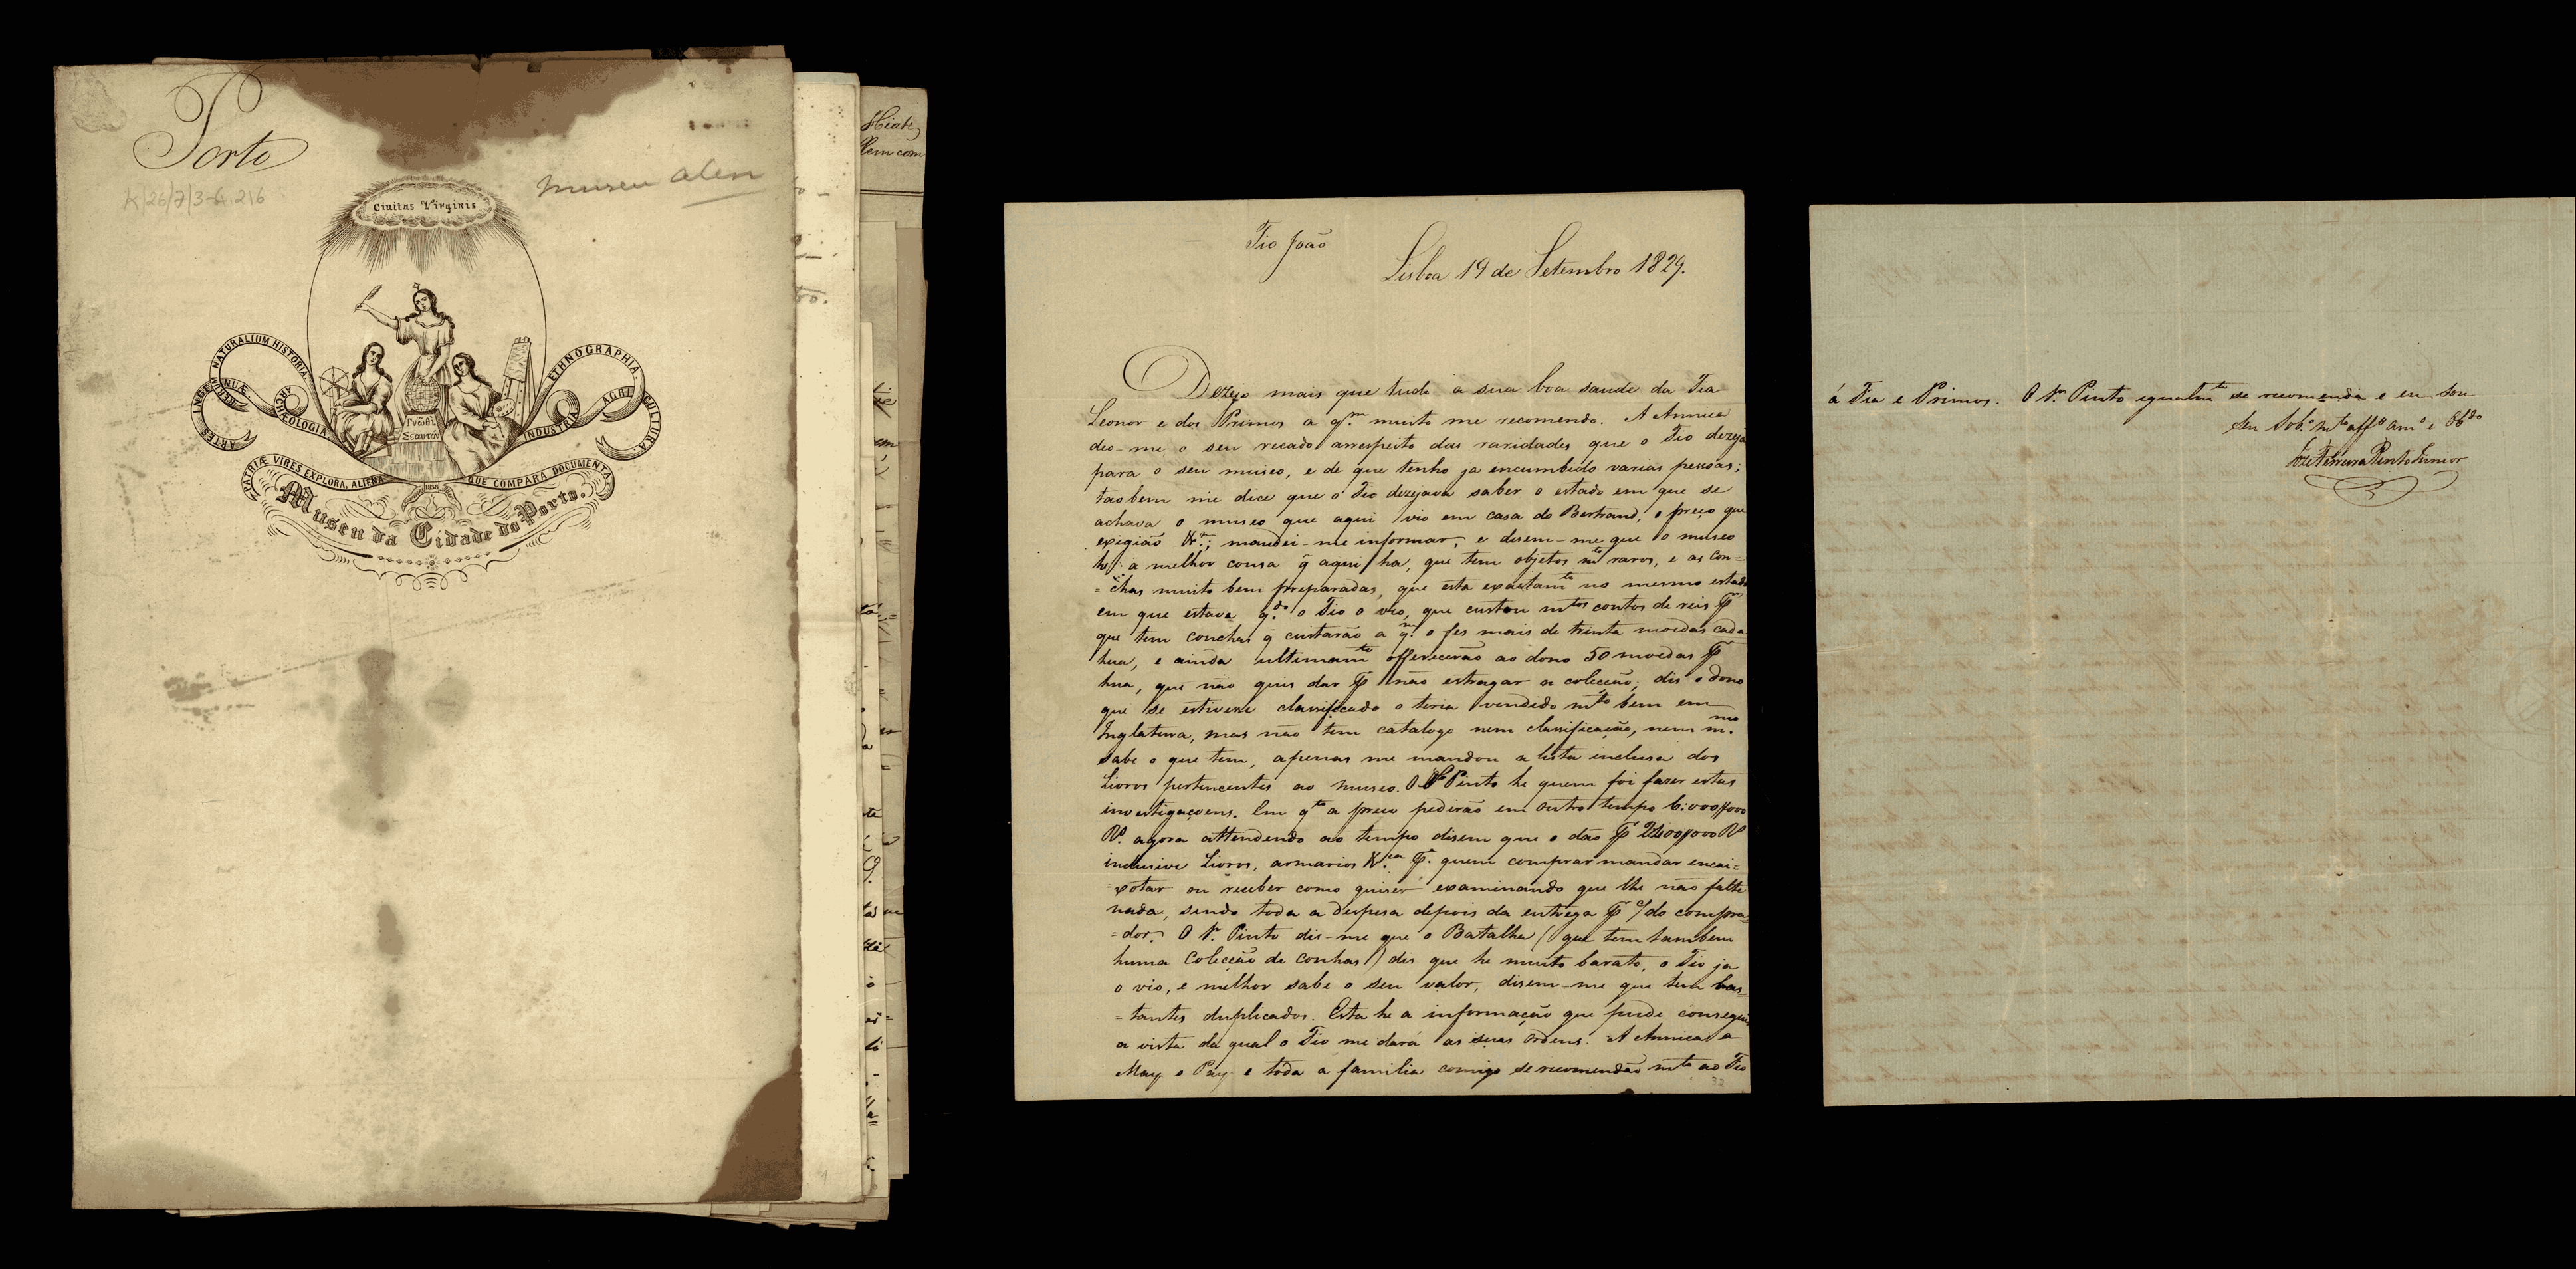 Porto
K/26/7/3-6.216
museu Alen
Civitas Virginis
RERUM NATURALIUM HISTORIA.
ARTES INGENUÆ
ARCHEOLOGIA.
ETHNOGRAPHIA.
AGRICULTURA.
INDUSTRIA
Γνῶθι
Σεαυτόν
PATRIÆ VIRES EXPLORA, ALIENA QUE COMPARA DOCUMENTA.
Museu da Cidade do Porto.
Hiate
Tio João
Lisboa 19 de Setembro 1829.
Dezejo mais que tudo a sua boa saude da Tia
Leonor e dos Primos a q.m muito me recomendo. A Annica
deo-me o seu recado arrespeito das raridades que o Tio dezeja
para o seu museo, e de que tenho ja encumbido varias pessoas;
taobem me dice que o Tio dezejava saber o estado em que se
achava o museo que aqui vio em casa do Bertrand, o preço que
exigião &.a; mandei-me informar, e disem-me que o museo
he a melhor cousa q̃ aqui ha, que tem objetos m.to raros, e as con=
=chas muito bem preparadas, que esta exactam.te no mesmo estado
em que estava q.do o Tio o vio, que custou m.tos contos de reis P
que tem conchas q̃ custarão a q.m o fes mais de trinta moedas cada
hua, e ainda ultimam.te offerecerão ao dono 50 moedas P
hua, que não quis dar P não estragar a coleccão; dis o dono
que se estivesse classificado o teria vendido m.to bem em
Inglaterra, mas não tem catalogo nem classificação, nem m.mo
sabe o que tem, apenas me mandou a lista inclusa dos
Livros pertencentes ao museo. O Sr. Pinto he quem foi fazer estas
investigaçoens. Em q.to a preço pedirão em outro tempo 6:000$000
R.s agora attendendo ao tempo disem que o dão P 2400$000 R.s
inclusive Livros, armarios &.ca P.a quem comprar mandar encai=
=xotar ou receber como quiser examinando que lhe não falte
nada, sendo toda a despesa depois da entrega P c/ do compra=
=dor. O Sr. Pinto dis-me que o Batalha (que tem tambem
huma Coleccão de Conhas) dis que he muito barato, o Tio ja
o vio, e melhor sabe o seu valor, disem-me que tem bas=
=tantes duplicados. Esta he a informação que pude conseguir
a vista da qual o Tio me dará as suas ordens. A Annica a
May o Pay e toda a familia comigo se recomendão m.to ao Tio
á Tia e Primos. O Sr. Pinto igualm.te se recomenda e eu sou
Seu Sob.o m.to aff.o am.o e Obg.do
Joze Ferreira Pinto Junior